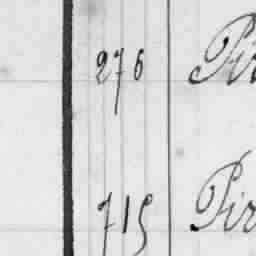 276 Pir
715 Pir